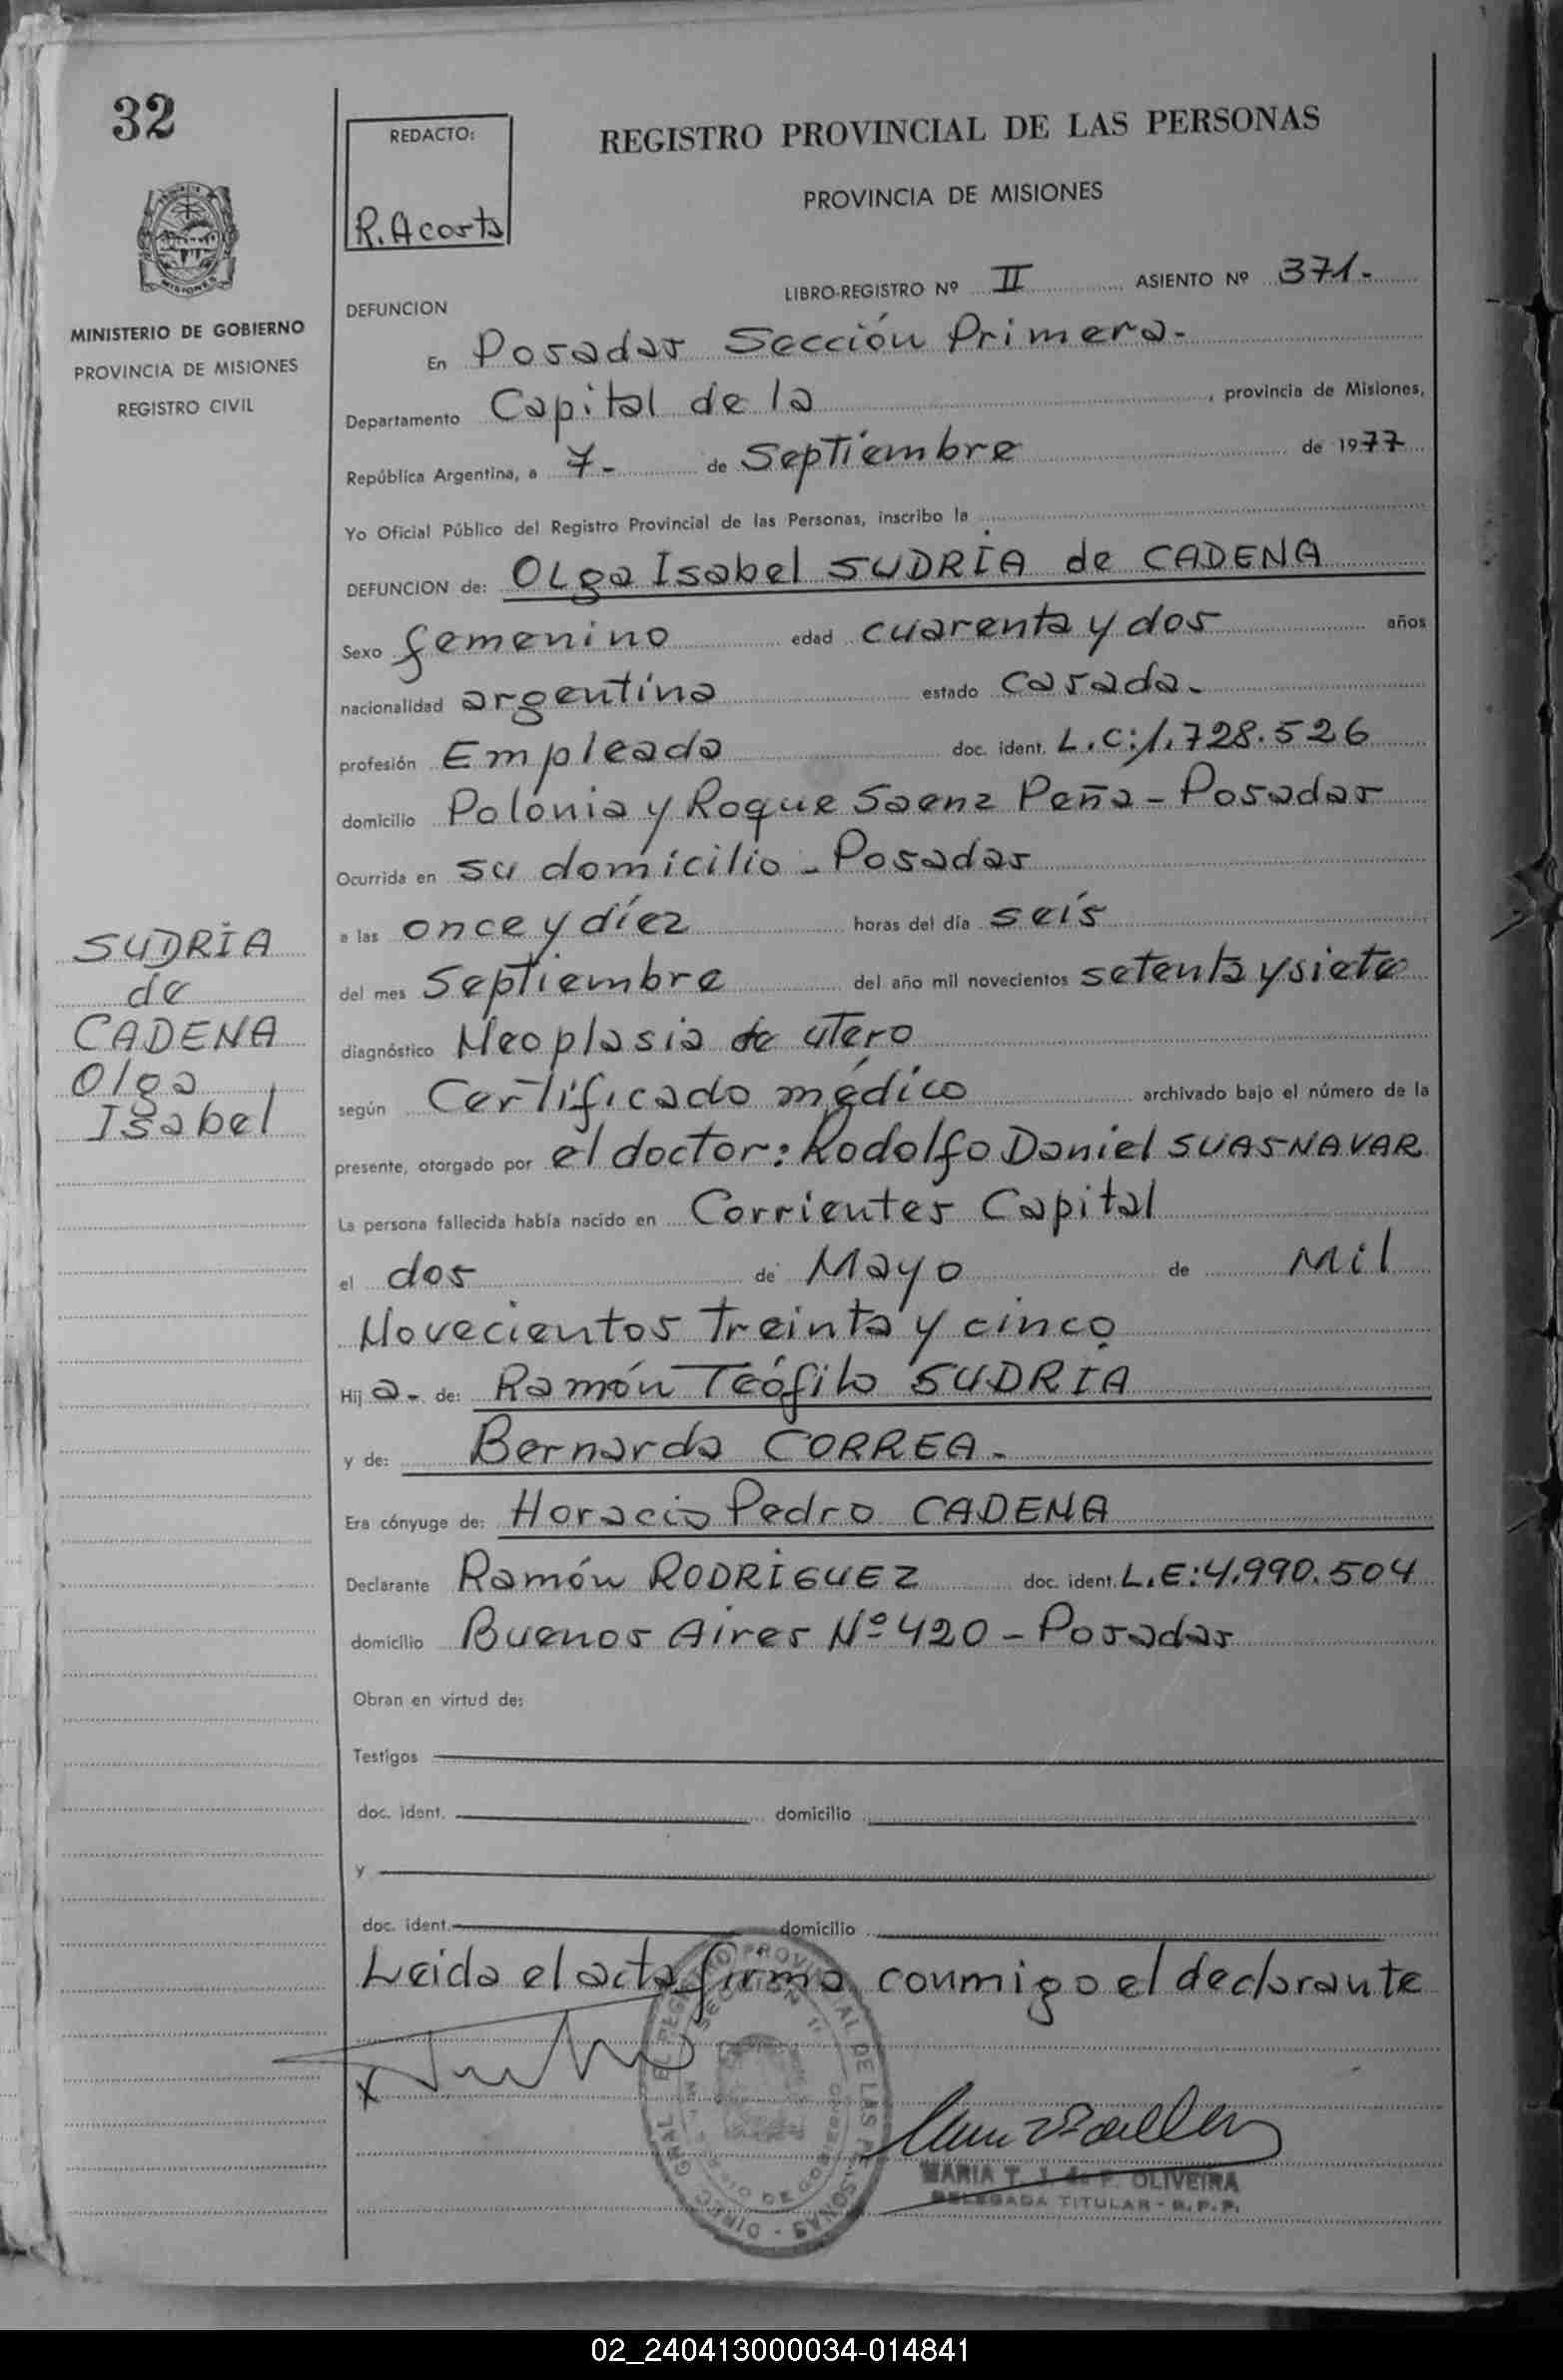 32
REDACTO:
R. Acosta
REGISTRO PROVINCIAL DE LAS PERSONAS
PROVINCIA DE MISIONES
MISIONES
MINISTERIO DE GOBIERNO
PROVINCIA DE MISIONES
REGISTRO CIVIL
LIBRO-REGISTRO Nº II ASIENTO Nº 371.-
DEFUNCION
En Posadas Sección Primera.-
Departamento Capital de la, provincia de Misiones,
República Argentina, a 7.- de Septiembre de 1977
Yo Oficial Público del Registro Provincial de las Personas, inscribo la
DEFUNCION de: OLga Isabel SUDRÍA de CADENA
Sexo femenino edad cuarenta y dos años
nacionalidad argentina estado casada.
profesión Empleada doc. ident. L.C:1.728.526
domicilio Polónia y Roque Saenz Peña - Posadas
Ocurrida en su domicilio - Posadas
a las once y díez horas del día seís
del mes Septiembre del año mil novecientos setenta y siete
diagnóstico Neoplasia de utero
según Certificado médico archivado bajo el número de la
presente, otorgado por el doctor: Rodolfo Daniel SUASNAVAR
La persona fallecida había nacido en Corrientes Capital
el dos de Mayo de Mil
Novecientos treinta y cinco
Hija.- de: Ramón Teófilo SUDRIA
y de: Bernarda CORREA.-
Era cónyuge de: Horacio Pedro CADENA
Declarante Ramón RODRÍGUEZ doc. ident. L.E:4.990.504
domicilio Buenos Aires Nº 420 - Posadas
Obran en virtud de:
Testigos
doc. ident. domicilio
y
doc. ident. domicilio
Leida el acta firma conmigo el declarante
SUDRÍA
de
CADENA
Olga
Isabel
MARIA T. J. de F. OLIVEIRA
DELEGADA TITULAR - R.P.P.
DIREC. GRAL. REGISTRO PROVINCIAL DE LAS PERSONAS
02_240413000034-014841